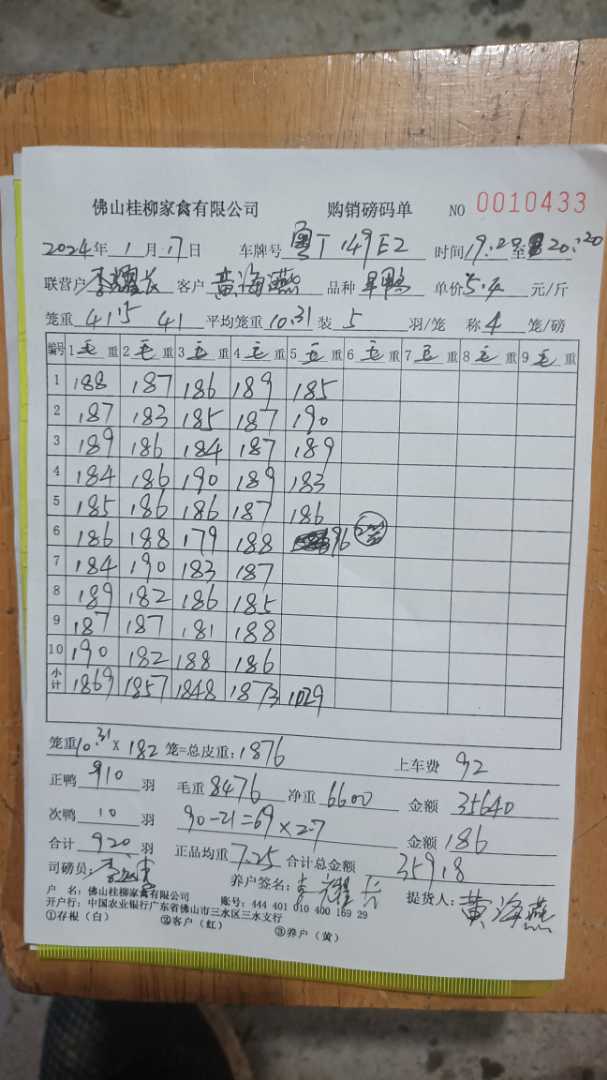 佛山桂柳家禽有限公司 购销磅码单 NO 0010433
2024年 1月 17日 车牌号 粤T 149E2 时间 19:29 至 20:20
联营户 李耀长 客户 黄海燕 品种 旱鸭 单价 5.4 元/斤
笼重 41.5 41 平均笼重 10.31 装 5 羽/笼 称 4 笼/磅
编号 1 毛 重 2 毛 重 3 毛 重 4 毛 重 5 毛 重 6 毛 重 7 毛 重 8 毛 重 9 毛 重
1 188 187 186 189 185
2 187 183 185 187 190
3 189 186 184 187 189
4 184 186 190 189 183
5 185 186 186 187 186
6 186 188 179 188 96
7 184 190 183 187
8 189 182 186 185
9 187 187 181 188
10 190 182 188 186
小计 1869 1857 1848 1873 1029
笼重 10.31 × 182 笼=总皮重: 1876 上车费 92
正鸭 910 羽 毛重 8476 净重 6600 金额 35640
次鸭 10 羽 90-21=69×2.7 金额 186
合计 920 羽 正品均重 7.25 合计总金额 35918
司磅员: 养户签名: 李耀长 提货人: 黄海燕
户 名: 佛山桂柳家禽有限公司 账号: 444 401 010 400 169 29
开户行: 中国农业银行广东省佛山市三水区三水支行
①存根（白） ②客户（红） ③养户（黄）